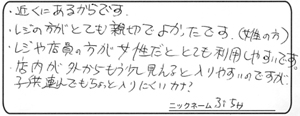 ・近くにあるからです。
・レジの方がとても親切でよかったです。(女性の方)
・レジや店員の方が女性だととても利用しやすいです。
・店内が外からもう少し見えると入りやすいのですが
子供連れでもちょっと入りにくいカナ?
ニックネーム